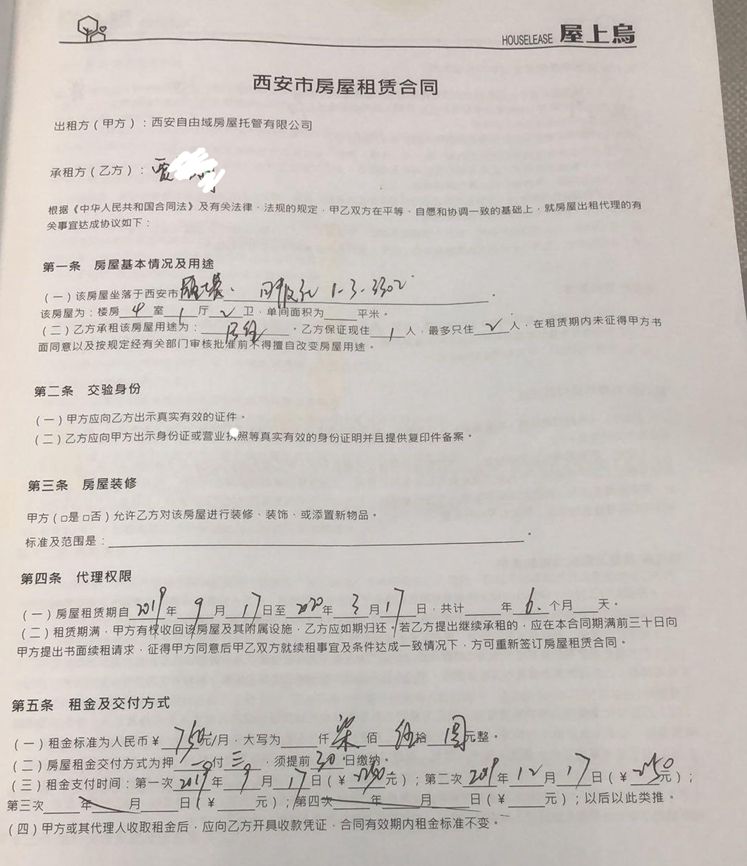 HOUSELEASE 屋上烏
西安市房屋租赁合同
出租方（甲方）：西安自由域房屋托管有限公司
承租方（乙方）：贾
根据《中华人民共和国合同法》及有关法律、法规的规定，甲乙双方在平等、自愿和协调一致的基础上，就房屋出租代理的有
关事宜达成协议如下：
第一条 房屋基本情况及用途
（一）该房屋坐落于西安市雁塔 1-3-3302
该房屋为：楼房 4 室 1 厅 2 卫，单间面积为____平米。
（二）乙方承租该房屋用途为：居住。乙方保证现住 1 人，最多只住 2 人，在租赁期内未征得甲方书
面同意以及按规定经有关部门审核批准前不得擅自改变房屋用途。
第二条 交验身份
（一）甲方应向乙方出示真实有效的证件。
（二）乙方应向甲方出示身份证或营业执照等真实有效的身份证明并且提供复印件备案。
第三条 房屋装修
甲方（□是 □否）允许乙方对该房屋进行装修、装饰、或添置新物品。
标准及范围是：
第四条 代理权限
（一）房屋租赁期自 2019 年 9 月 17 日至 2020 年 3 月 17 日，共计____年 6 个月____天。
（二）租赁期满，甲方有权收回该房屋及其附属设施，乙方应如期归还。若乙方提出继续承租的，应在本合同期满前三十日向
甲方提出书面续租请求，征得甲方同意后甲乙双方就续租事宜及条件达成一致情况下，方可重新签订房屋租赁合同。
第五条 租金及交付方式
（一）租金标准为人民币￥ 750元/月，大写为____仟 柒 佰 伍 拾 圆 元整。
（二）房屋租金交付方式为押 一 付 三，须提前 30 日缴纳。
（三）租金支付时间：第一次 2019 年 9 月 17 日（￥ 2250 元）；第二次 2019 年 12 月 17 日（￥ 2250 元）；
第三次____年____月____日（￥____元）；第四次____年____月____日（￥____元）；以后以此类推。
（四）甲方或其代理人收取租金后，应向乙方开具收款凭证，合同有效期内租金标准不变。